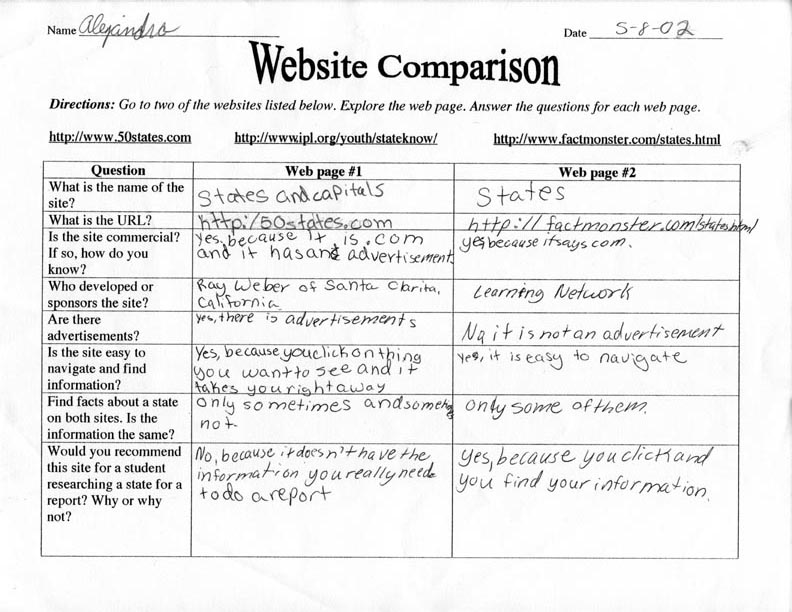 Name Alejandro Date 5-8-02
Website Comparison
Directions: Go to two of the websites listed below. Explore the web page. Answer the questions for each web page.
http://www.50states.com http://www.ipl.org/youth/stateknow/ http://www.factmonster.com/states.html
Question Web page #1 Web page #2
What is the name of the
site?
States and capitals
States
What is the URL?
http:/50states.com
http://factmonster.com/states.html
Is the site commercial?
If so, how do you
know?
Yes, because It is .com
and it has and advertisement
yes, because it says com.
Who developed or
sponsors the site?
Ray Weber of Santa Clarita,
California
Learning Network
Are there
advertisements?
Yes, there is advertisements
No it is not an advertisement
Is the site easy to
navigate and find
information?
Yes, because you click on thing
you want to see and it
takes you right away
Yes, it is easy to navigate
Find facts about a state
on both sites. Is the
information the same?
only sometimes and
not
only some of them.
Would you recommend
this site for a student
researching a state for a
report? Why or why
not?
No, because it doesn't have the
information you really need
to do a report
Yes, because you click and
you find your information.